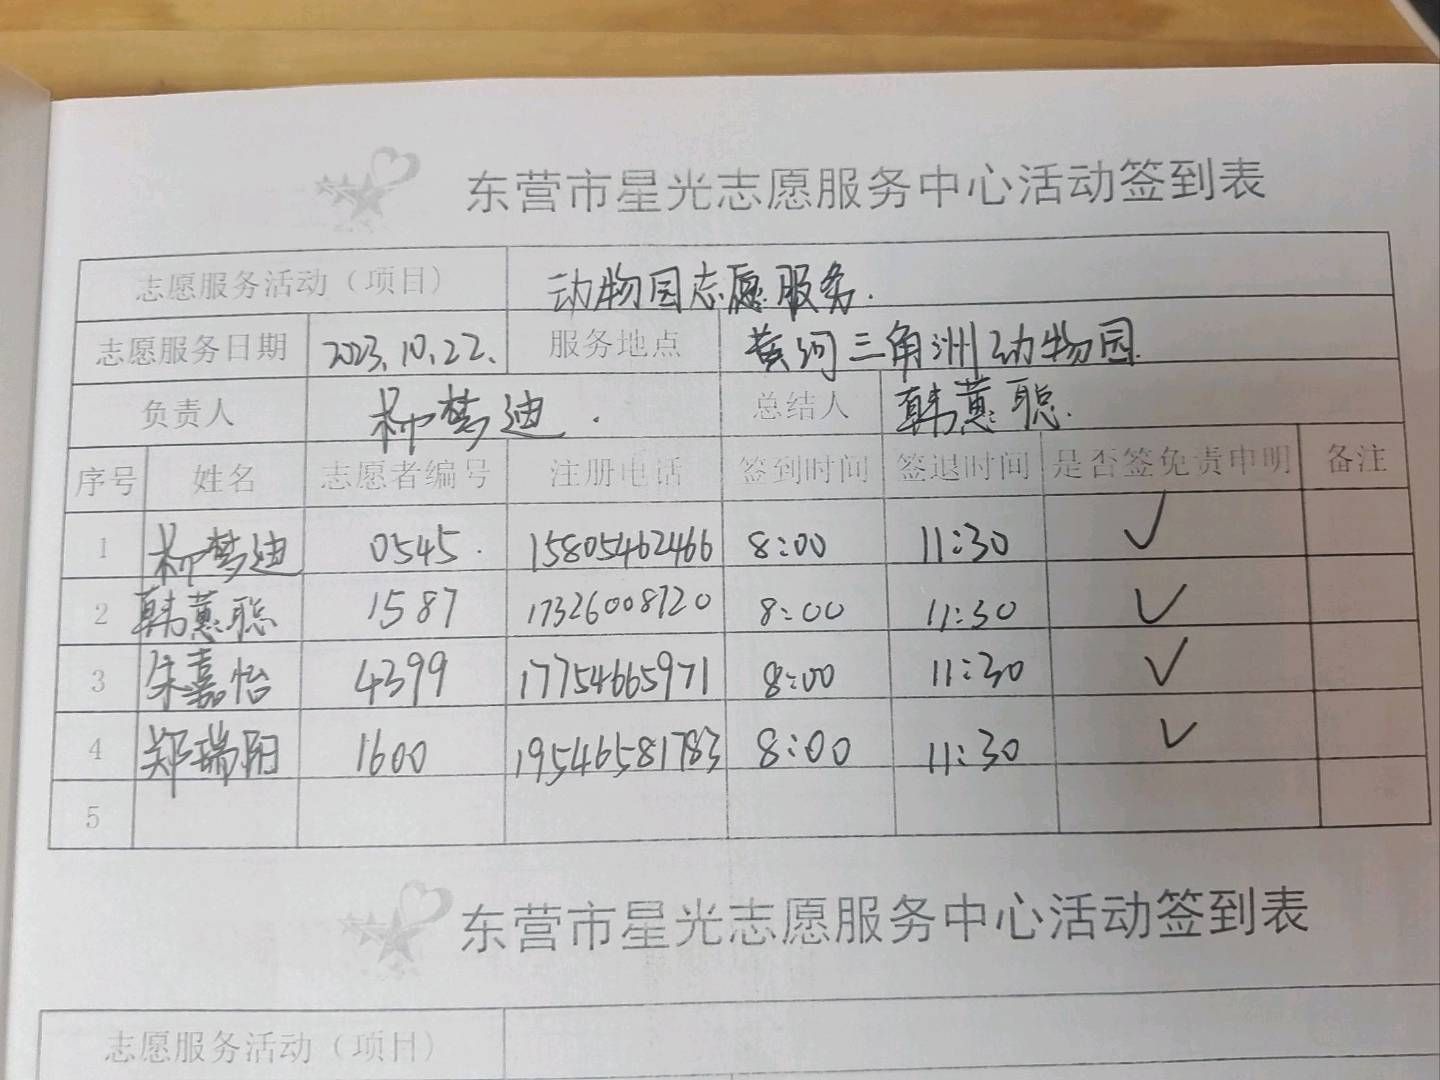 东营市星光志愿服务中心活动签到表
志愿服务活动（项目） 动物园志愿服务.
志愿服务日期 2023.10.22. 服务地点 黄河三角洲动物园.
负责人 柳梦迪. 总结人 韩蕙聪.
序号 姓名 志愿者编号 注册电话 签到时间 签退时间 是否签免责申明 备注
1 柳梦迪 0545. 15805462466 8:00 11:30 ✓
2 韩蕙聪 1587 17326008720 8:00 11:30 ✓
3 朱嘉怡 4399 17754665971 8:00 11:30 ✓
4 郑瑞阳 1600 19546581783 8:00 11:30 ✓
5
东营市星光志愿服务中心活动签到表
志愿服务活动（项目）